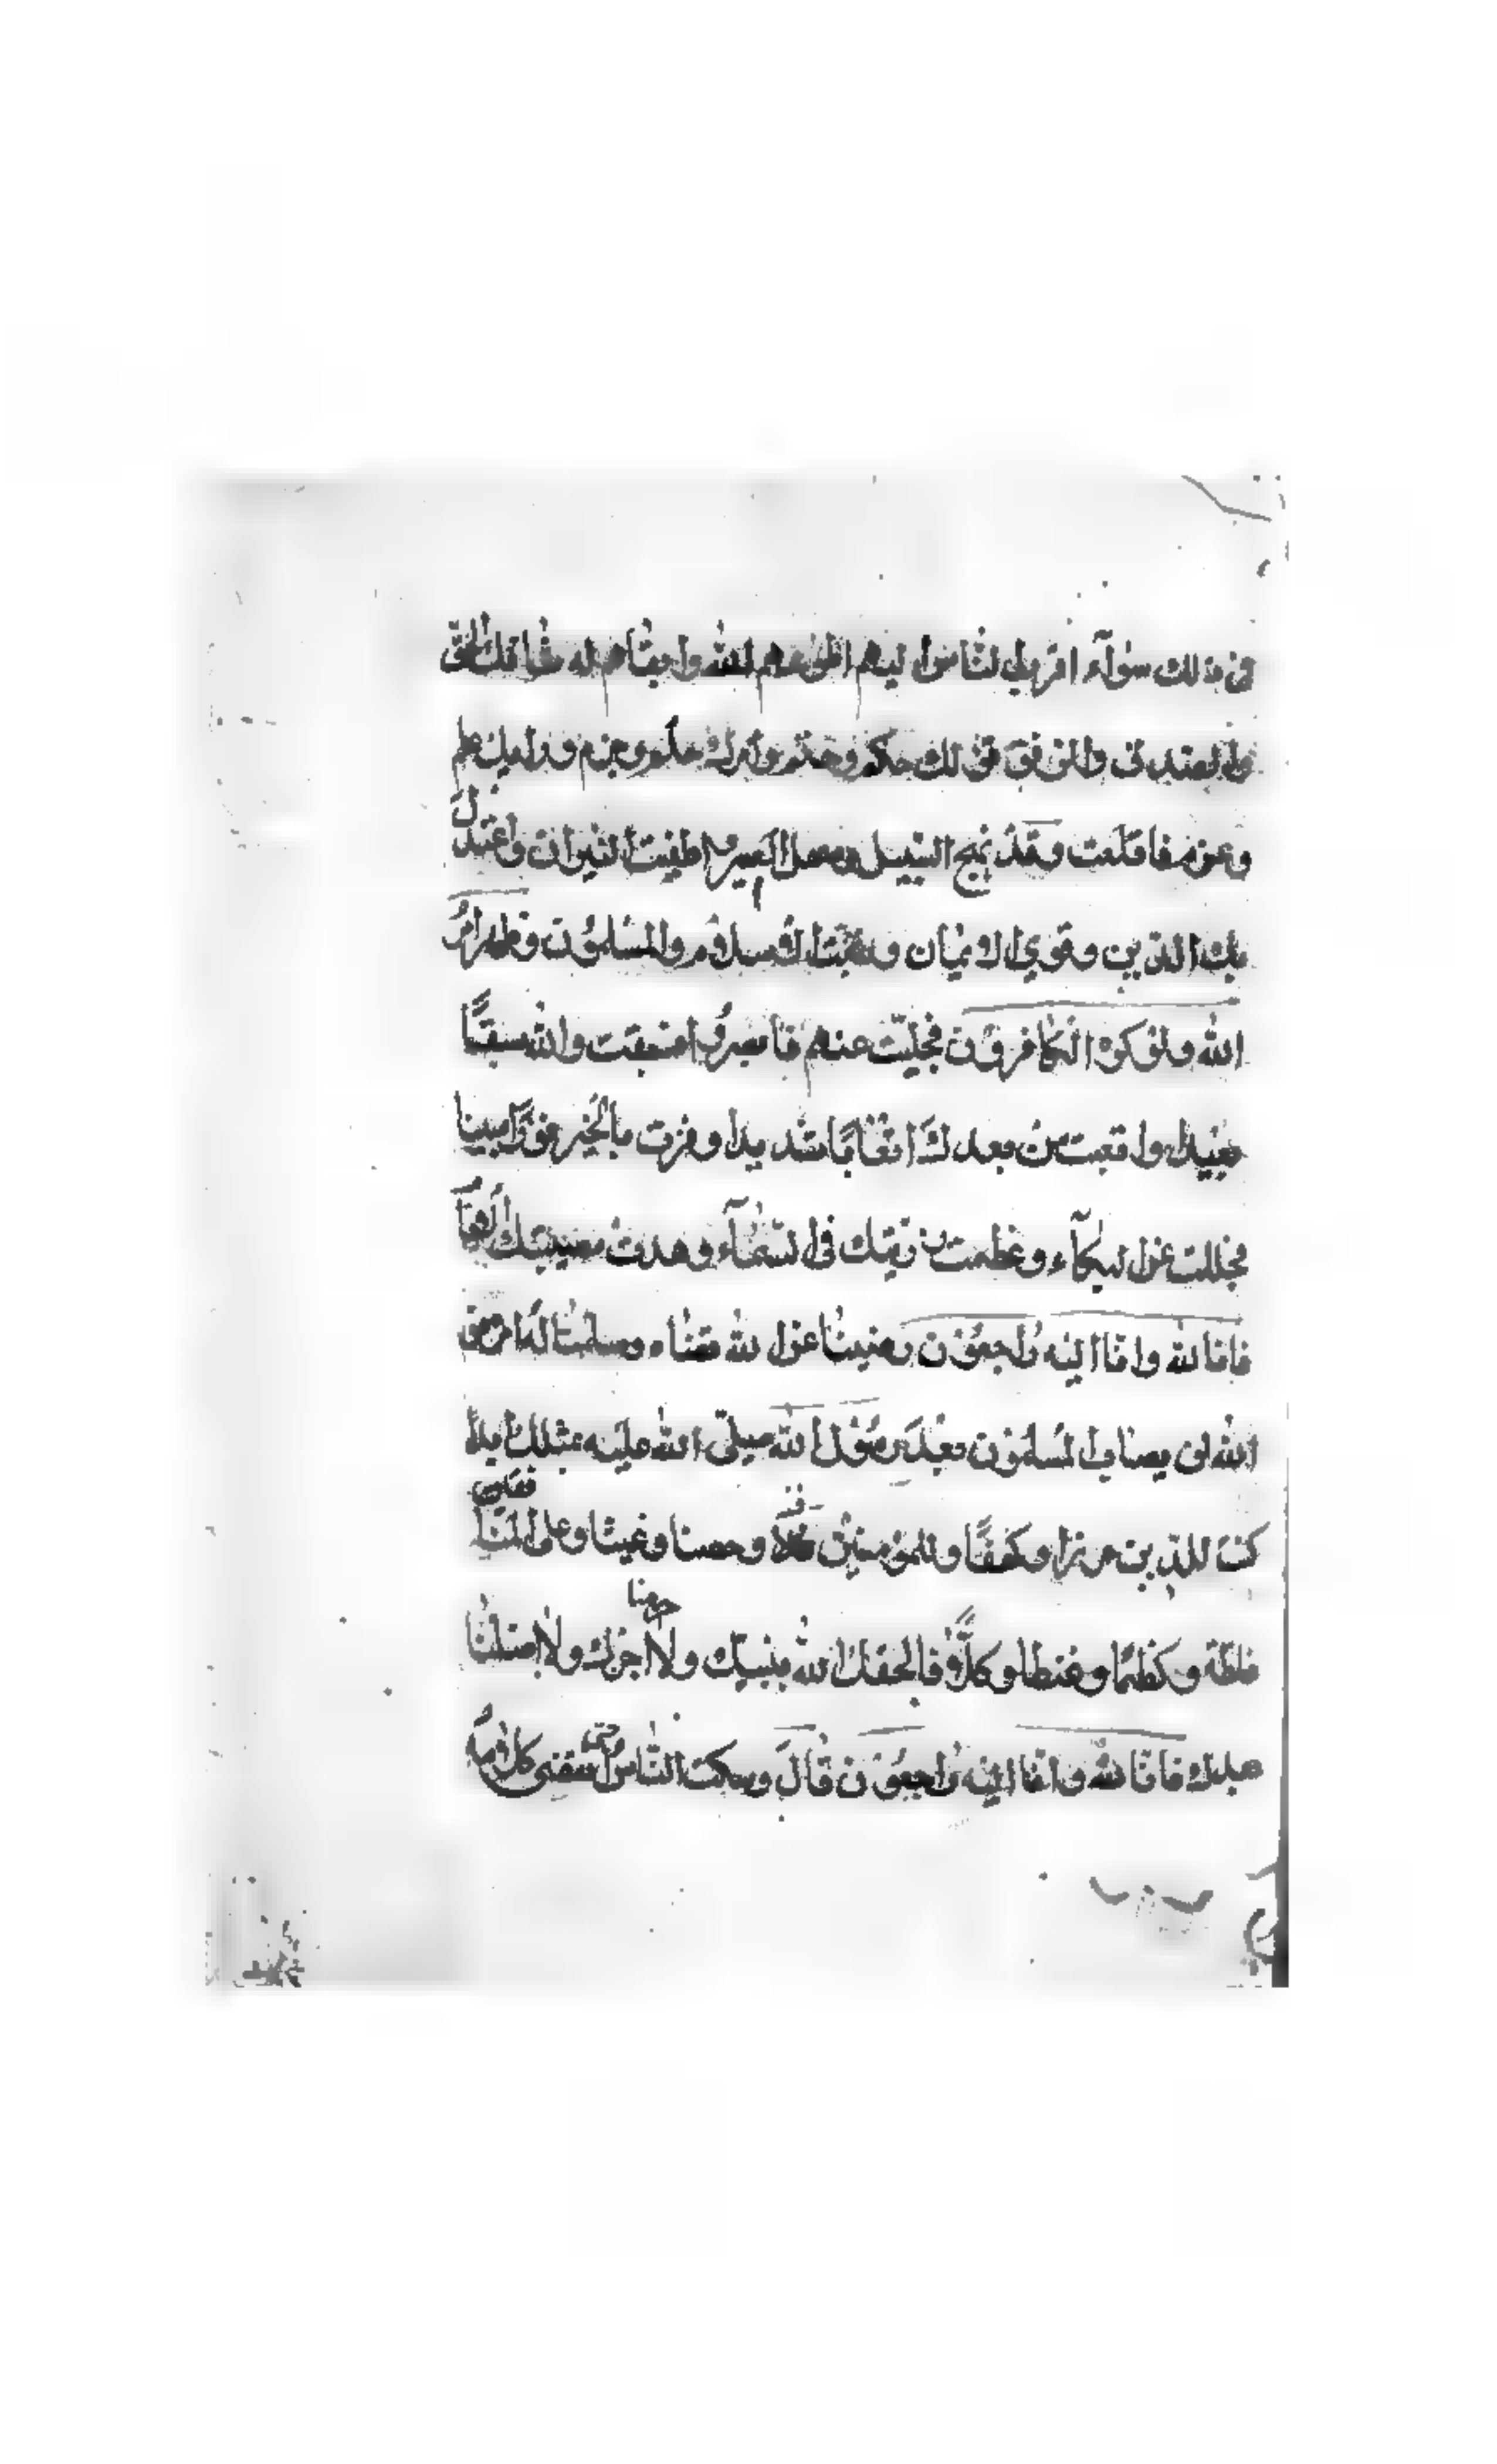 في ذلك سوآء اقرب الناس اليهم اطوعهم لله واتقاهم له شانك الحق
والصدق والرفق قولك حكم وحتم وامرك حلم وحزم ورايك علم
وعزم فاقلعت وقد نهج السبيل وسهل العسير واطفيت النيران واعتدل
بك الدين وقوي الايمان وثبت الاسلام والمسلمون وظهر امر
الله ولو كره الكافرون فجليت عنهم فابصروا فسبقت والله سبقا
بعيدا واتعبت من بعدك اتعابا شديدا وفزت بالخير فوزا مبينا
فجللت عن البكآء وعظمت رزيتك في السمآء وهدت مصيبتك الانام
فانا لله وانا اليه راجعون رضينا عن الله قضاء وسلمنا له امره فو
الله لن يصاب المسلمون بعد رسول الله صلى الله عليه بمثلك ابدا
كنت للدين حرزا وكهفا وللمومنين فئة وحصنا وغيثا وعلى المنافقين
غلظة وكظما وغيظا فالحقك الله بنبيك ولا حرمنا اجرك ولا اضلنا
بعدك فانا لله وانا اليه راجعون قال وسكت الناس حتى انقضى كلامه